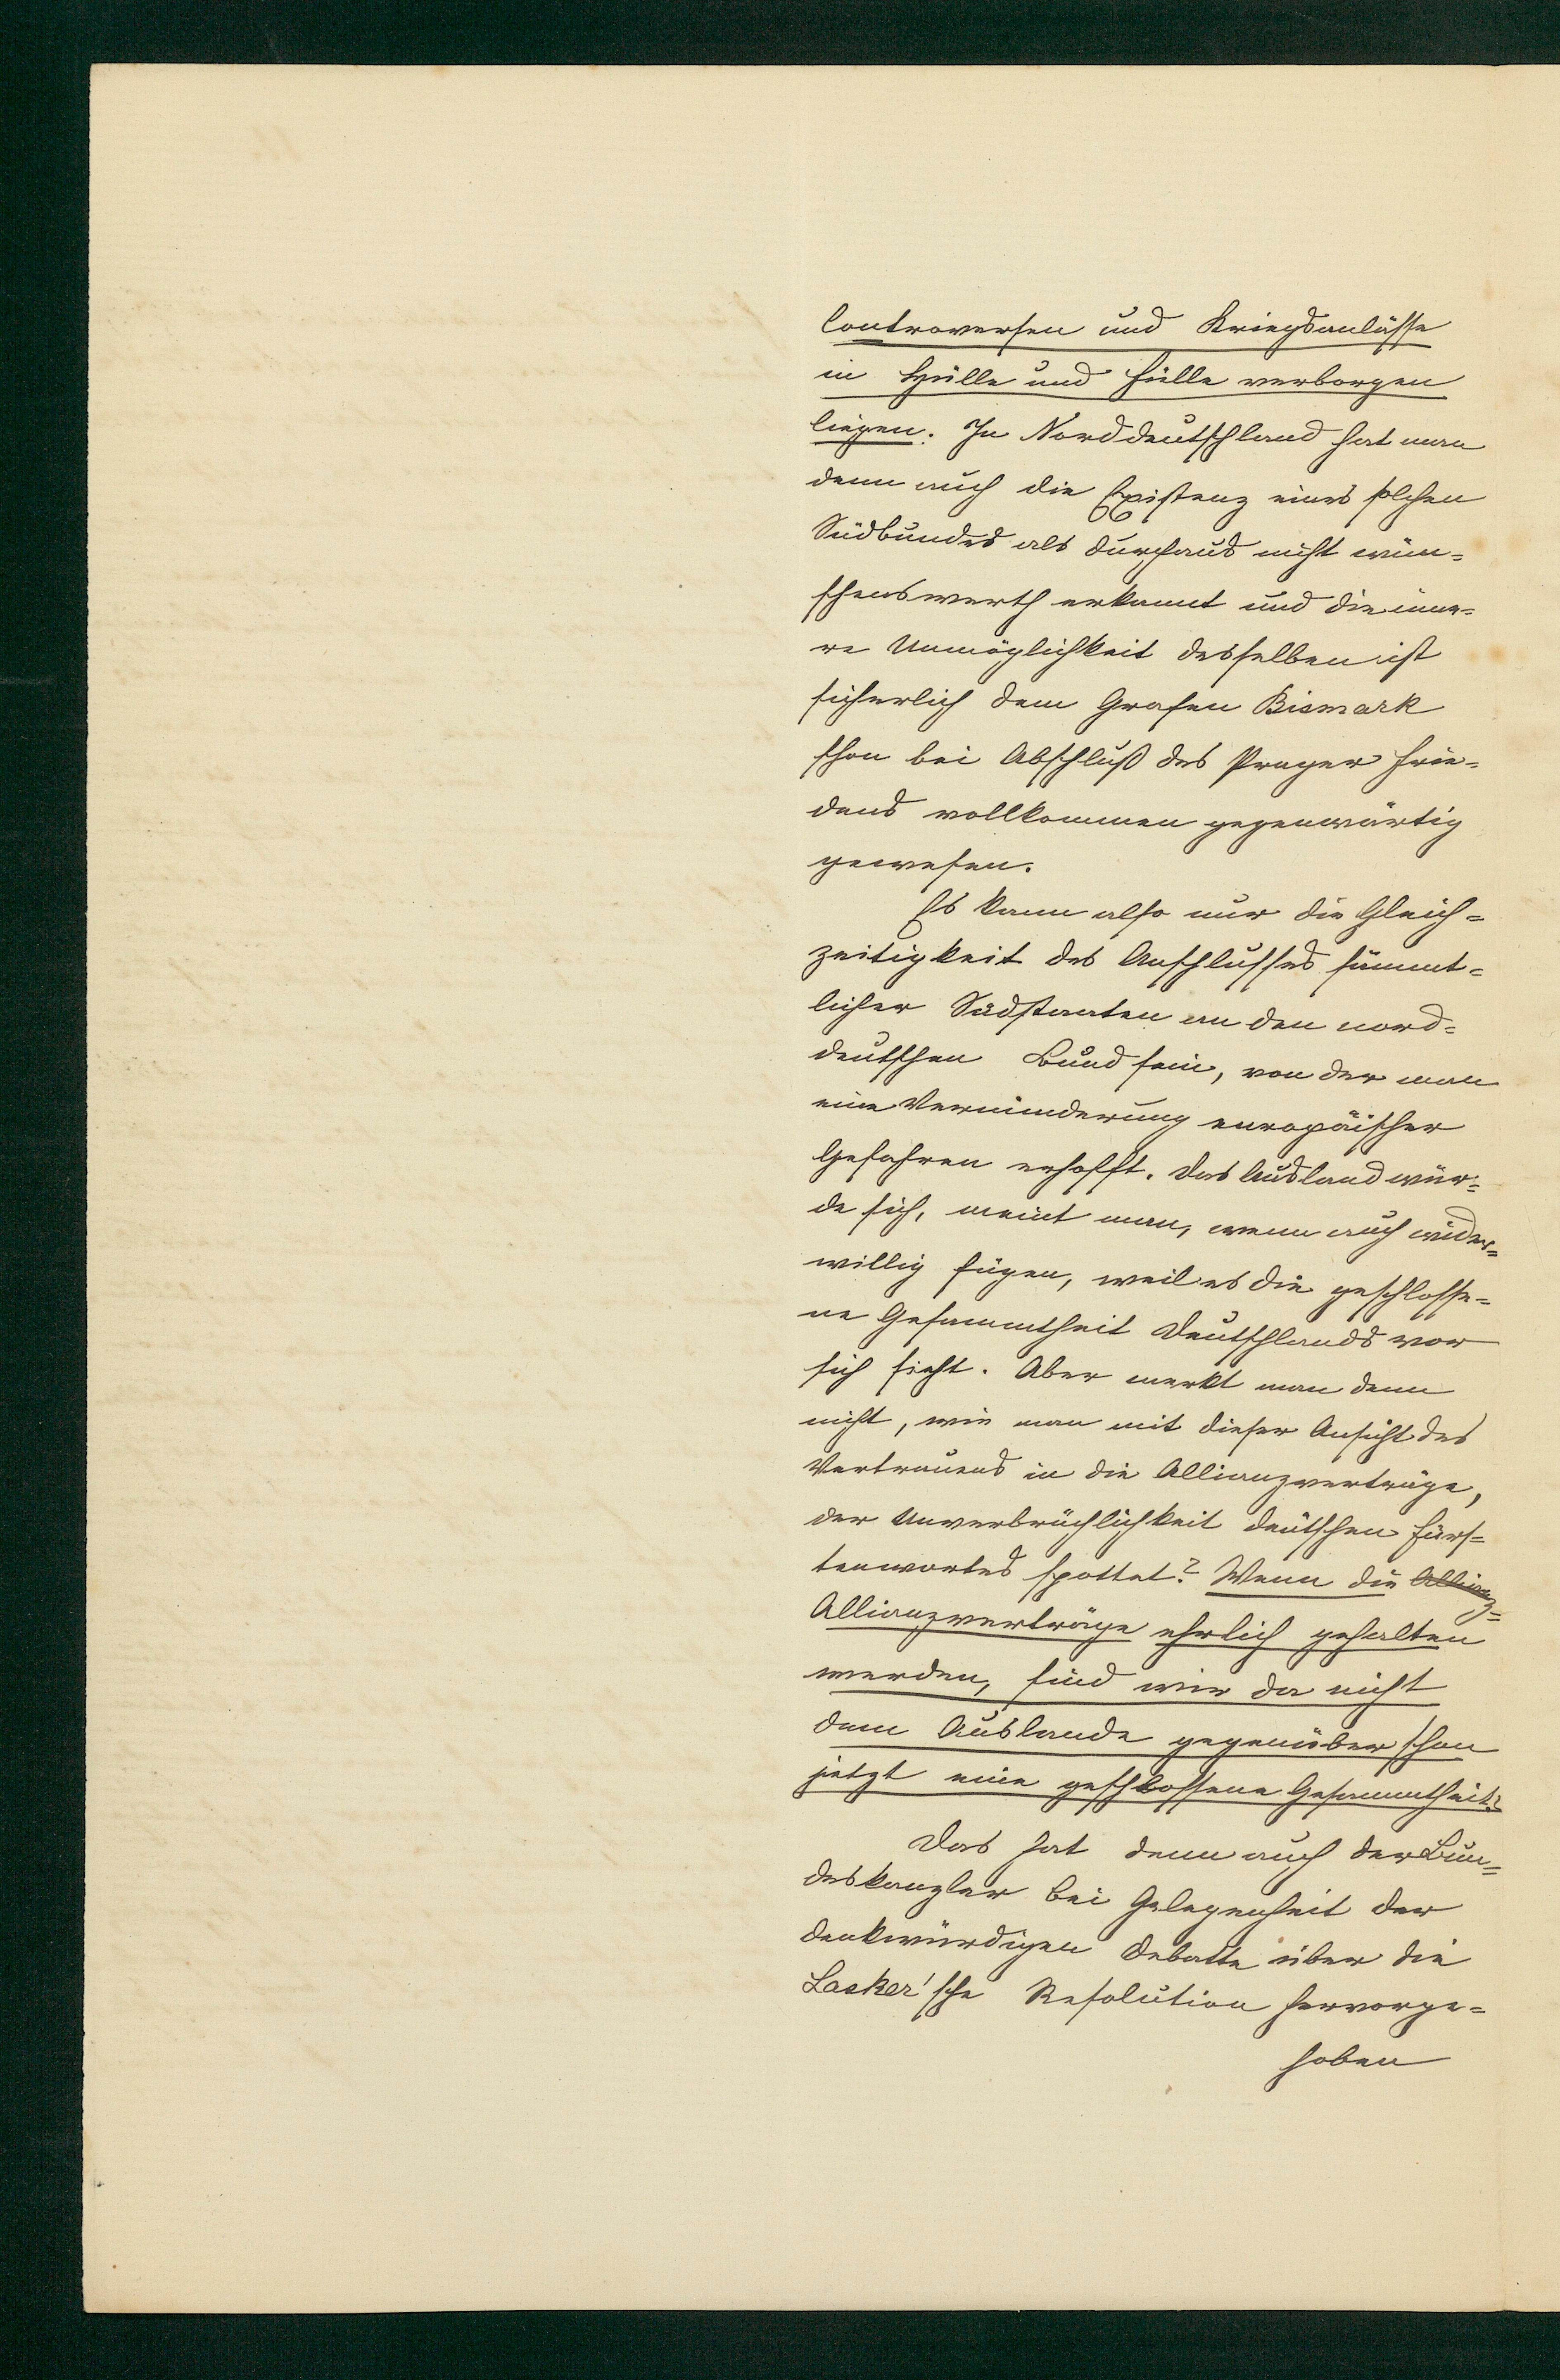 Controversen und Kriegsanlässe
in Hülle und Fülle verborgen
liegen. In Norddeutschland hat man
denn auch die Existenz eines solchen
Südbundes als durchaus nicht wün=
schenswerth erkannt und die inne=
re Unmöglichkeit desselben ist
sicherlich dem Grafen Bismark
schon bei Abschluß des Prager Frie=
dens vollkommen gegenwärtig
gewesen.
Es kann also nur die Gleich=
zeitigkeit des Anschlusses sämmt=
licher Südstaaten an den nord=
deutschen Bund sein, von der man
eine Verminderung europäischer
Gefahren erhofft. Das Ausland wür=
de sich, meint man, wenn auch wider=
willig fügen, weil es die geschlosse=
ne Gesammtheit Deutschlands vor
sich sieht. Aber merkt man denn
nicht, wie man mit dieser Ansicht des
Vertrauens in die Allianzverträge,
der Unverbrüchlichkeit deutschen Fürs=
tenwortes spottet? Wenn die Allianz=
Allianzverträge ehrlich gehalten
werden, sind wir da nicht
dem Auslande gegenüber schon
jetzt eine geschlossene Gesammtheit?
Das hat denn auch der Bun=
deskanzler bei Gelegenheit der
denkwürdigen Debatte über die
Lasker'sche Resolution hervorge=
hoben